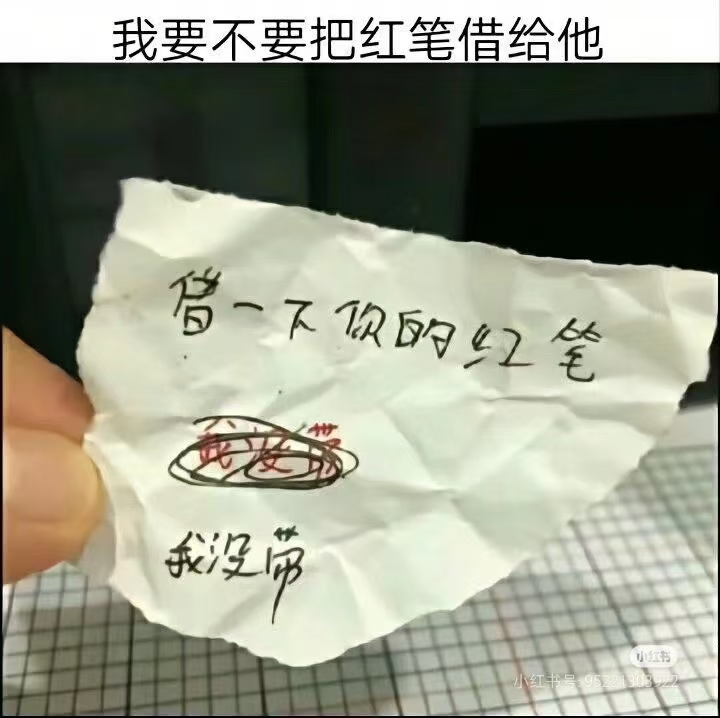 我要不要把红笔借给他
借一下你的红笔
我没带
我没带
小红书
小红书号:95221303922